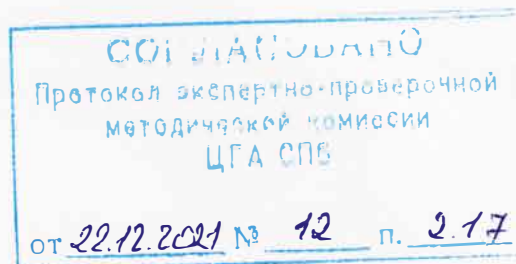 СОГЛАСОВАНО
Протокол экспертно-проверочной
методической комиссии
ЦГА СПб
от 22.12.2021 № 12 п. 2.17